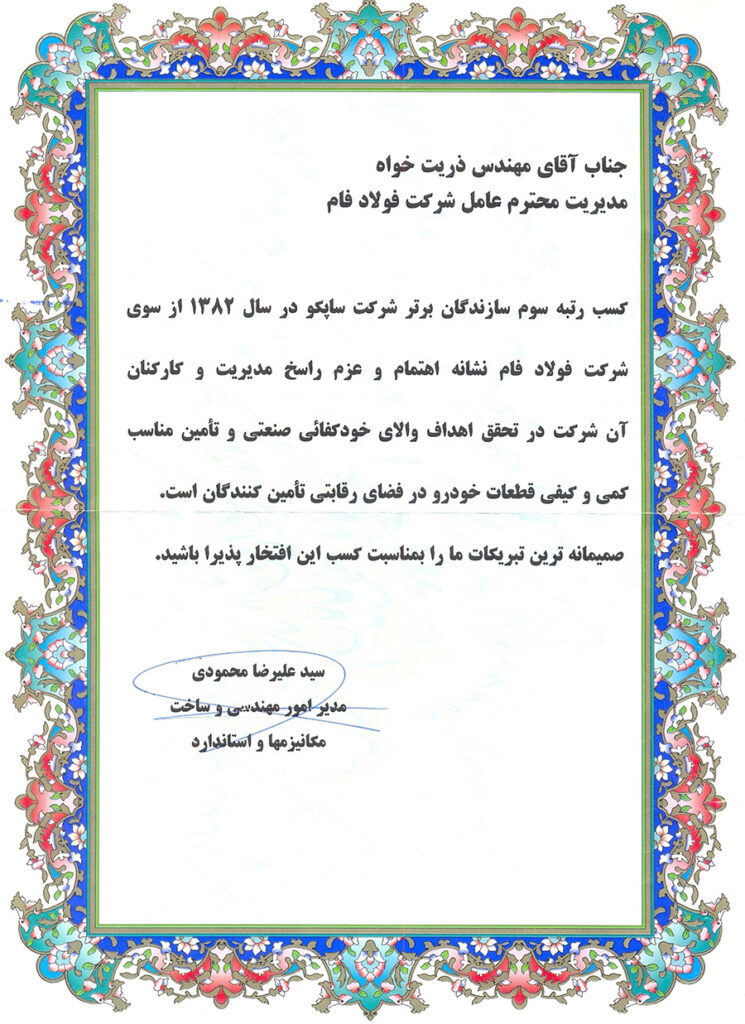 جناب آقای مهندس ذریت خواه
مدیریت محترم عامل شرکت فولاد فام
کسب رتبه سوم سازندگان برتر شرکت ساپکو در سال ۱۳۸۲ از سوی
شرکت فولاد فام نشانه اهتمام و عزم راسخ مدیریت و کارکنان
آن شرکت در تحقق اهداف والای خودکفائی صنعتی و تأمین مناسب
کمی و کیفی قطعات خودرو در فضای رقابتی تأمین کنندگان است.
صمیمانه ترین تبریکات ما را بمناسبت کسب این افتخار پذیرا باشید.
سید علیرضا محمودی
مدیر امور مهندسی و ساخت
مکانیزمها و استاندارد